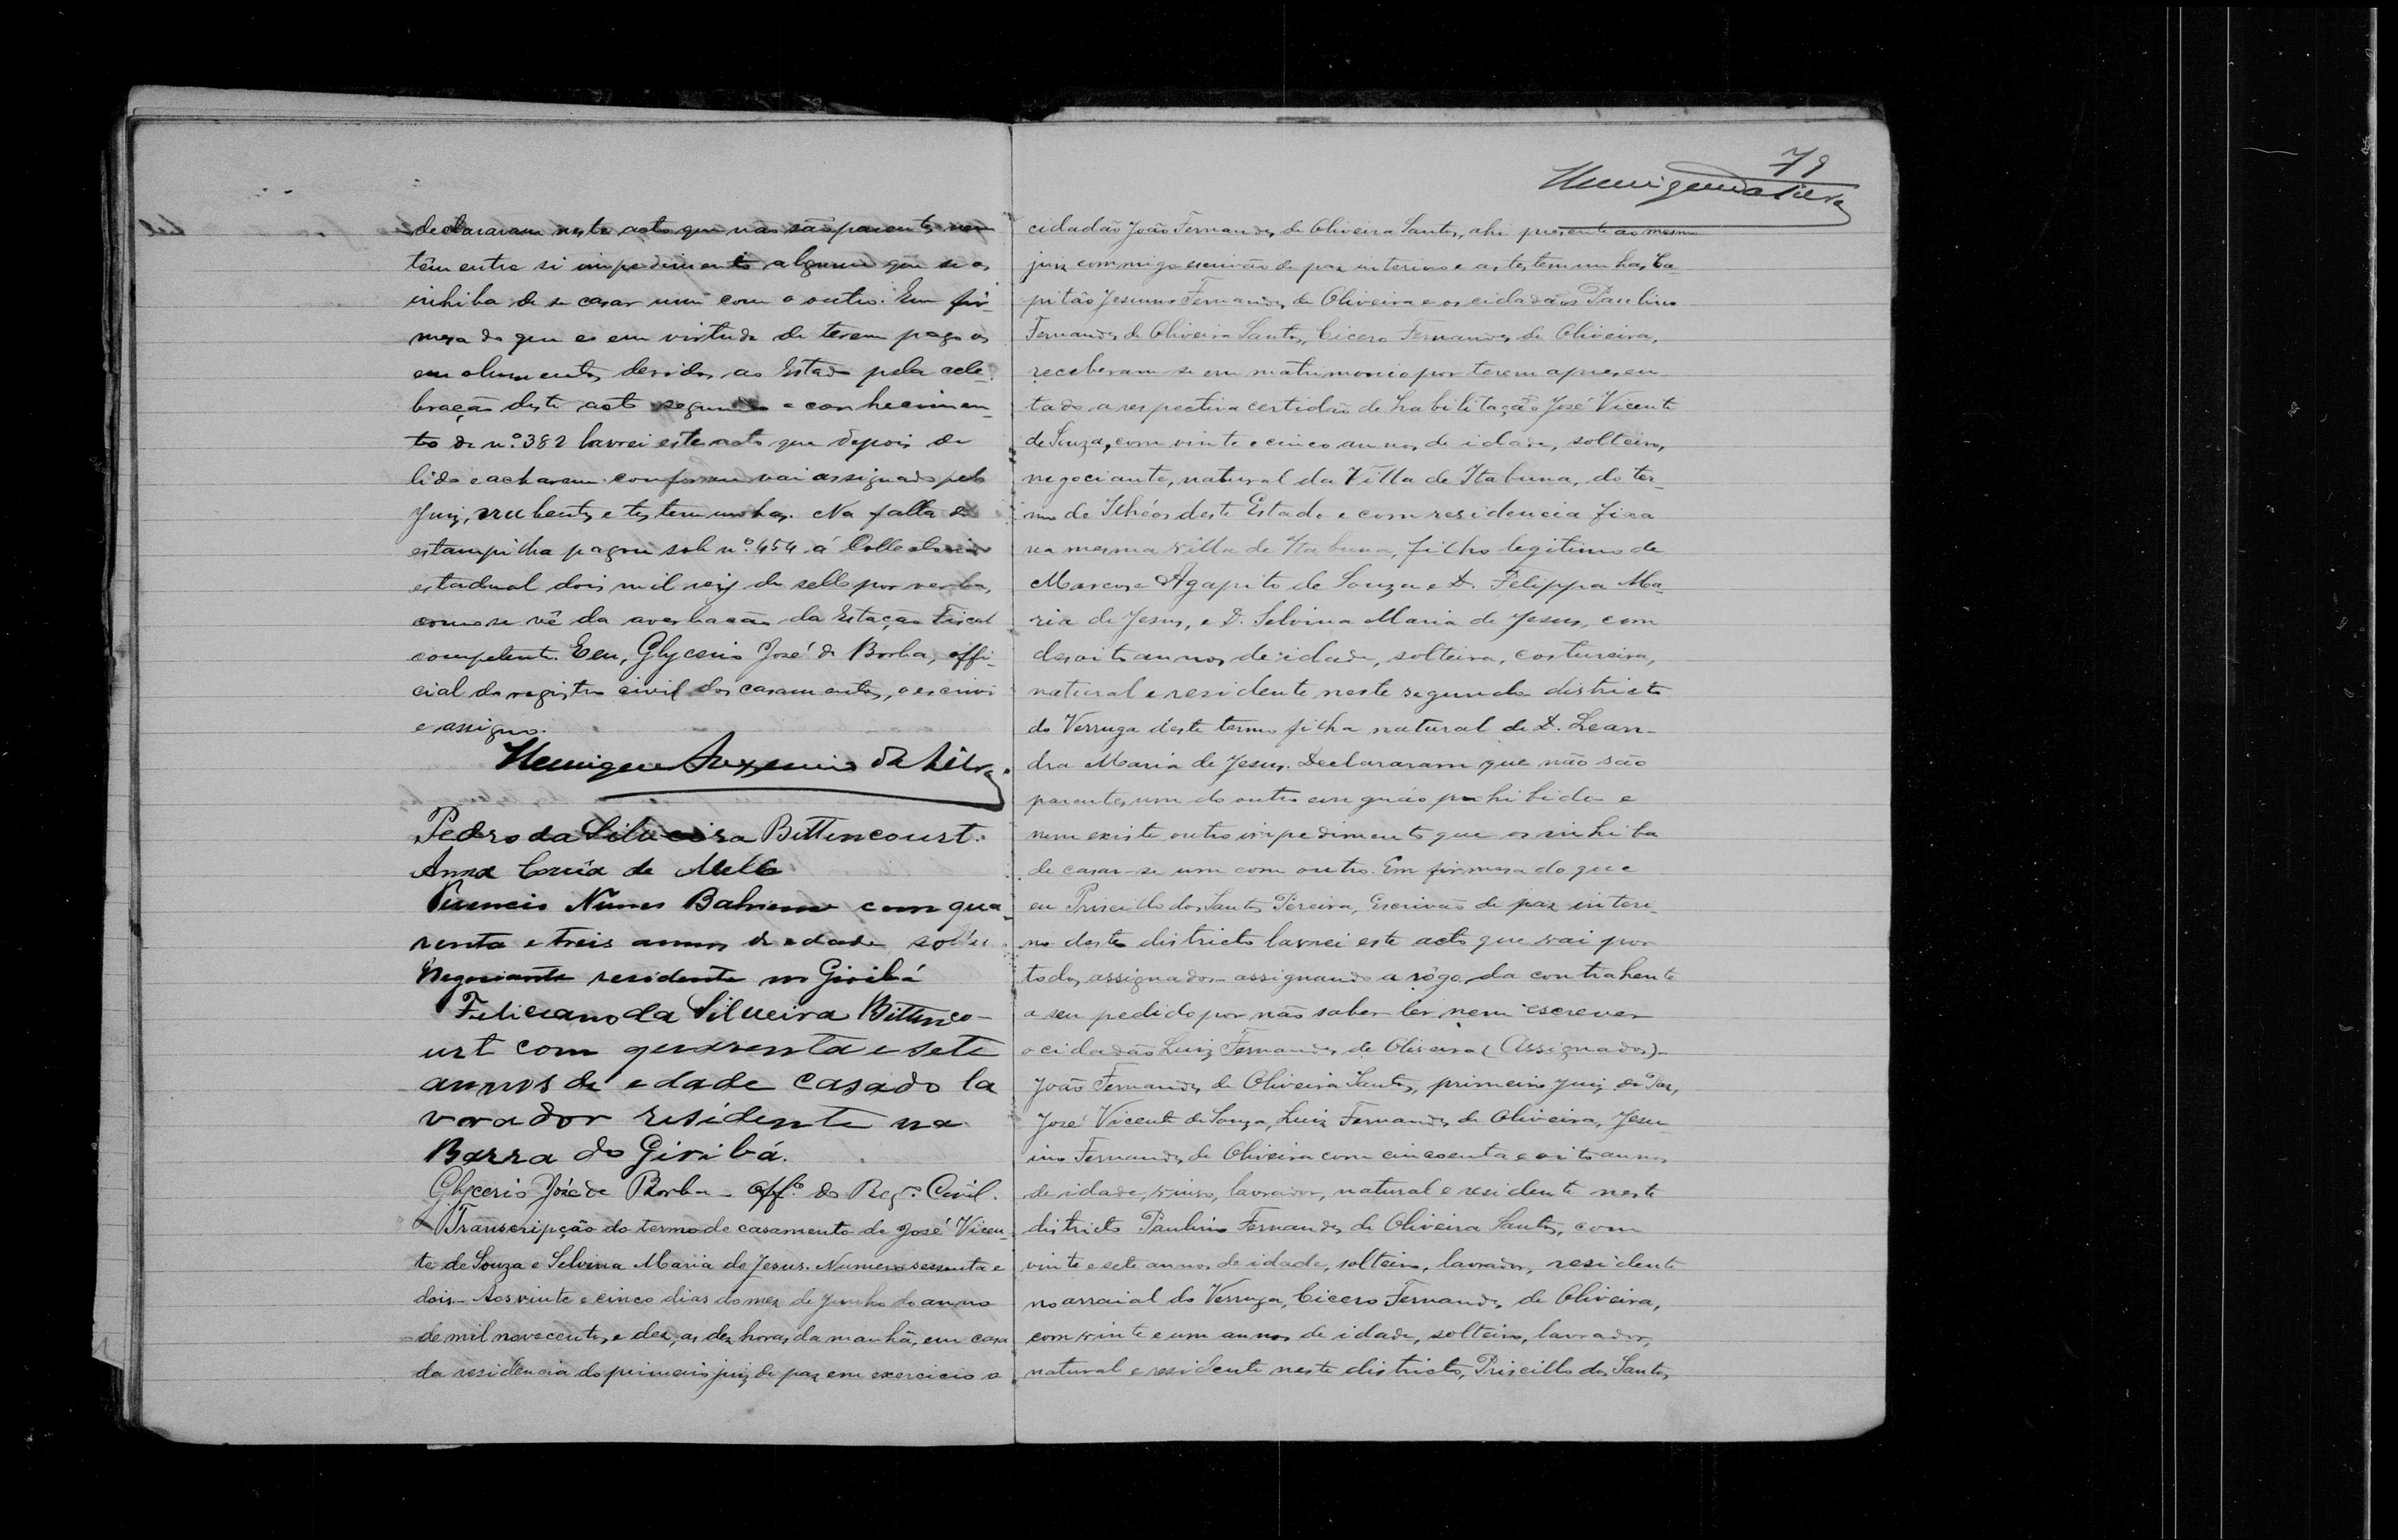 declararam neste acto que não são parentes nem
têm entre si impedimento algum que os
inhiba de se casar um com o outro. Em fir-
mesa do que e em virtude de terem pago os
emolumentos devidos ao Estado pela cele-
bração deste acto segundo o conhecimen-
to de n.º 382 lavrei este acto que depois de
lido e acharem conforme vai assignado pelo
Juiz, nubentes e testemunhas. Na falta de
estampilha pagou sob n.º 454 á Collectoria
estadual dois mil reis de sello por verba,
como se vê da averbação da Estação Fiscal
competente. Eeu, Glycerio José de Borba, offi-
cial do registro civil dos casamentos, o escrevi
e assigno.
da Silva.
Pedro da Silveira Bittencourt.
Anna Corrêa de Mello
Nunes Bahiense com qua-
renta e treis annos de edade
Negociante residente no Giribá
Feliciano da Silveira Bittenco-
urt com quarenta e sete
annos de edade casado la
vrador residente na
Barra do Giribá.
Glycerio José de Borba - Off.º do Reg.º Civil.
Transcripção do termo de casamento de José Vicen-
te de Souza e Selvina Maria de Jesus. Numero sessenta e
dois - Aos vinte e cinco dias do mez de Junho do anno
de mil novecentos e dez, as dez horas da manhã, em casa
da residencia do primeiro juiz de paz em exercicio o
79
da Silva
cidadão João Fernandes de Oliveira Santos, ahi presente ao mesmo
juiz commigo escrivão de paz interino e as testemunhas Ca-
pitão Jesuino Fernandes de Oliveira e os cidadãos Paulino
Fernandes de Oliveira Santos, Cicero Fernandes de Oliveira,
receberam-se em matrimonio por terem apresen-
tado a respectiva certidão de habilitação José Vicente
de Souza, com vinte e cinco annos de idade, solteiro,
negociante, natural da Villa de Itabuna, do ter-
mo de Ilhéos deste Estado e com residencia fixa
na mesma villa de Itabuna, filho legitimo de
Marcos Agapito de Souza e D. Felippa Ma-
ria de Jesus, e D. Selvina Maria de Jesus, com
desoito annos de idade, solteira, costureira,
natural e residente neste segundo districto
do Verruga deste termo filha natural de D. Lean-
dra Maria de Jesus. Declararam que não são
parentes um do outro em gráo prohibido e
nem existe outro impedimento que os inhiba
de casar-se um com outro. Em firmesa do que
eu Priscillo dos Santos Pereira, Escrivão de paz interi-
no deste districto lavrei este acto que vai por
todos assignados - assignando a rôgo da contrahente
a seu pedido por não saber ler nem escrever
o cidadão Luiz Fernandes de Oliveira (Assignados) -
João Fernandes de Oliveira Santos, primeiro Juiz de Paz,
José Vicente de Souza, Luiz Fernandes de Oliveira, Jesu-
ino Fernandes de Oliveira com cincoenta e oito annos
de idade, viuvo, lavrador, natural e residente neste
districto Paulino Fernandes de Oliveira Santos, com
vinte e sete annos de idade, solteiro, lavrador, residente
no arraial do Verruga, Cicero Fernandes de Oliveira,
com vinte e um annos de idade, solteiro, lavrador,
natural e residente neste districto, Priscillo dos Santos